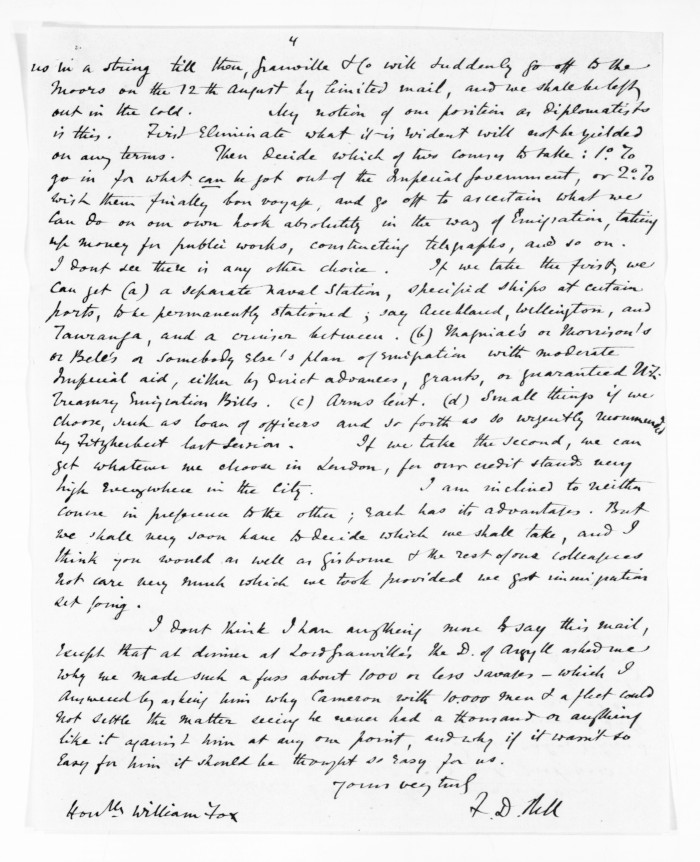 4
us in a string till then, Granville & Co will suddenly go off to the
Moors on the 12th August by limited mail, and we shall be left
out in the cold. My notion of our position as diplomatists
is this. First Eliminate what it is evident will not be yielded
on any terms. Then decide which of two courses to take: 1o. To
go in for what can be got out of the Imperial Government, or 2o. To
wish them finally bon voyage, and go off to ascertain what we
can do on our own hook absolutely in the way of Emigration, taking
up money for public works, constructing telegraphs, and so on.
I dont see there is any other choice. If we take the first, we
can get (a) a separate Naval Station, specified ships at certain
ports, to be permanently stationed; say Auckland, Wellington, and
Tauranga, and a cruiser between. (b) Magniac's or Morrison's
or Bell's or somebody else's plan of Emigration with moderate
Imperial aid, either by direct advances, grants, or guaranteed
Treasury Emigration Bills. (c) Arms lent. (d) Small things if we
choose, such as loan of officers and so forth as so urgently recommended
by Fitzherbert last Session. If we take the second, we can
get whatever we choose in London, for our credit stands very
high everywhere in the City. I am inclined to neither
course in preference to the other; each has its advantages. But
we shall very soon have to decide which we shall take, and I
think you would as well as Gisborne & the rest of our colleagues
not care very much which we took provided we got immigration
set going.
I dont think I have anything more to say this mail,
except that at dinner at Lord Granville's the D. of Argyll asked me
why we made such a fuss about 1000 or less savages - which I
answered by asking him why Cameron with 10.000 men & a fleet could
not settle the matter seeing he never had a thousand or anything
like it against him at any one point, and why if it wasn't so
easy for him it should be thought so easy for us.
Yours very truly
Honble William Fox F. D. Bell